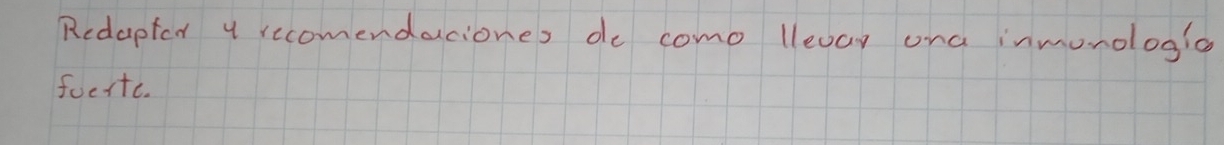 Redaptar 4 recomendaciones de como llevar una inmunología
fuerte.